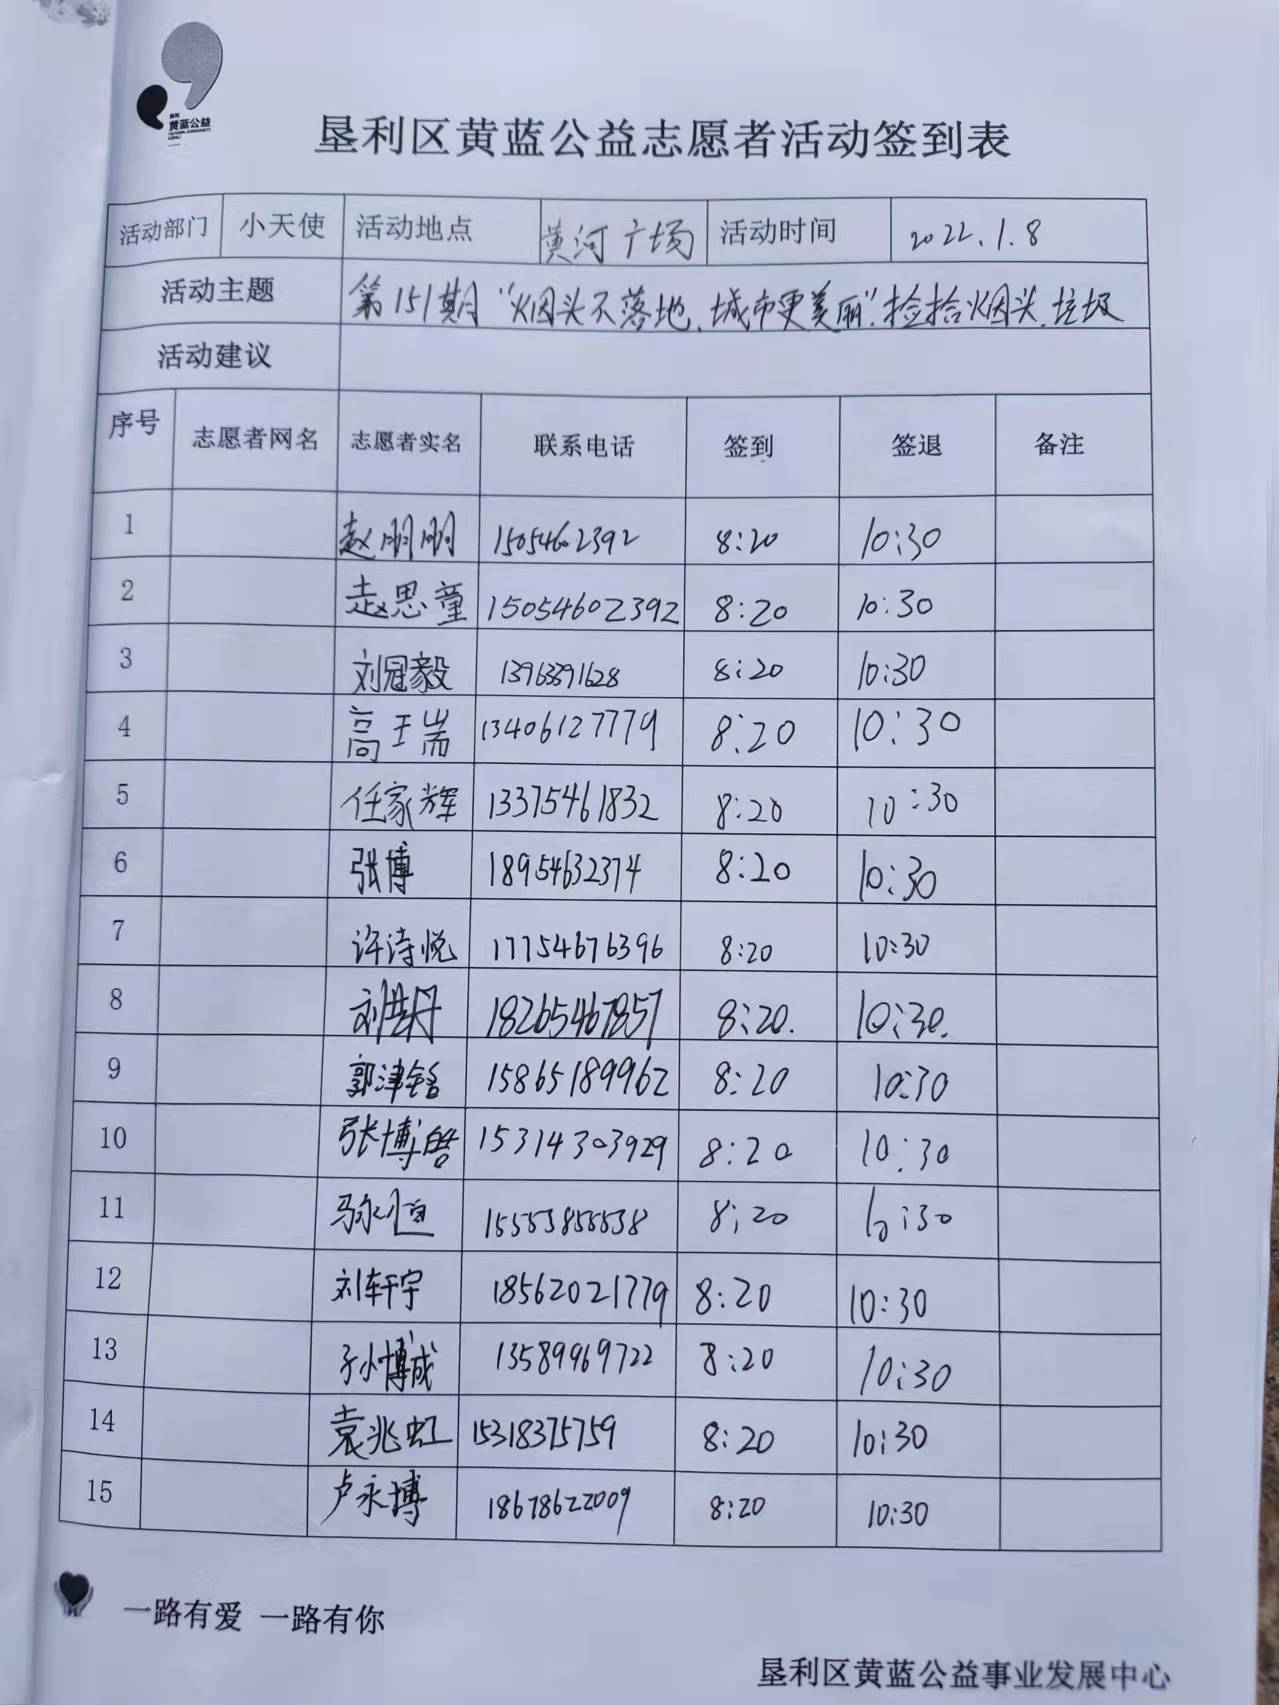 黄蓝公益
垦利区黄蓝公益志愿者活动签到表
活动部门 小天使 活动地点 黄河广场 活动时间 2022.1.8
活动主题 第151期“烟头不落地、城市更美丽”.捡拾烟头.垃圾
活动建议
序号 志愿者网名 志愿者实名 联系电话 签到 签退 备注
1 赵明明 15054602392 8:20 10:30
2 赵思童 15054602392 8:20 10:30
3 刘冠毅 13963391628 8:20 10:30
4 高玉瑞 13406127779 8:20 10:30
5 任家辉 13375461832 8:20 10:30
6 张博 18954632374 8:20 10:30
7 许诗悦 17754676396 8:20 10:30
8 18265467857 8:20. 10:30.
9 郭津铭 15865189962 8:20 10:30
10 张博皓 15314303929 8:20 10:30
11 15553855538 8:20 10:30
12 刘轩宇 18562021779 8:20 10:30
13 孙博成 13589969722 8:20 10:30
14 袁兆虹 15318375759 8:20 10:30
15 卢永博 18678622009 8:20 10:30
一路有爱 一路有你
垦利区黄蓝公益事业发展中心